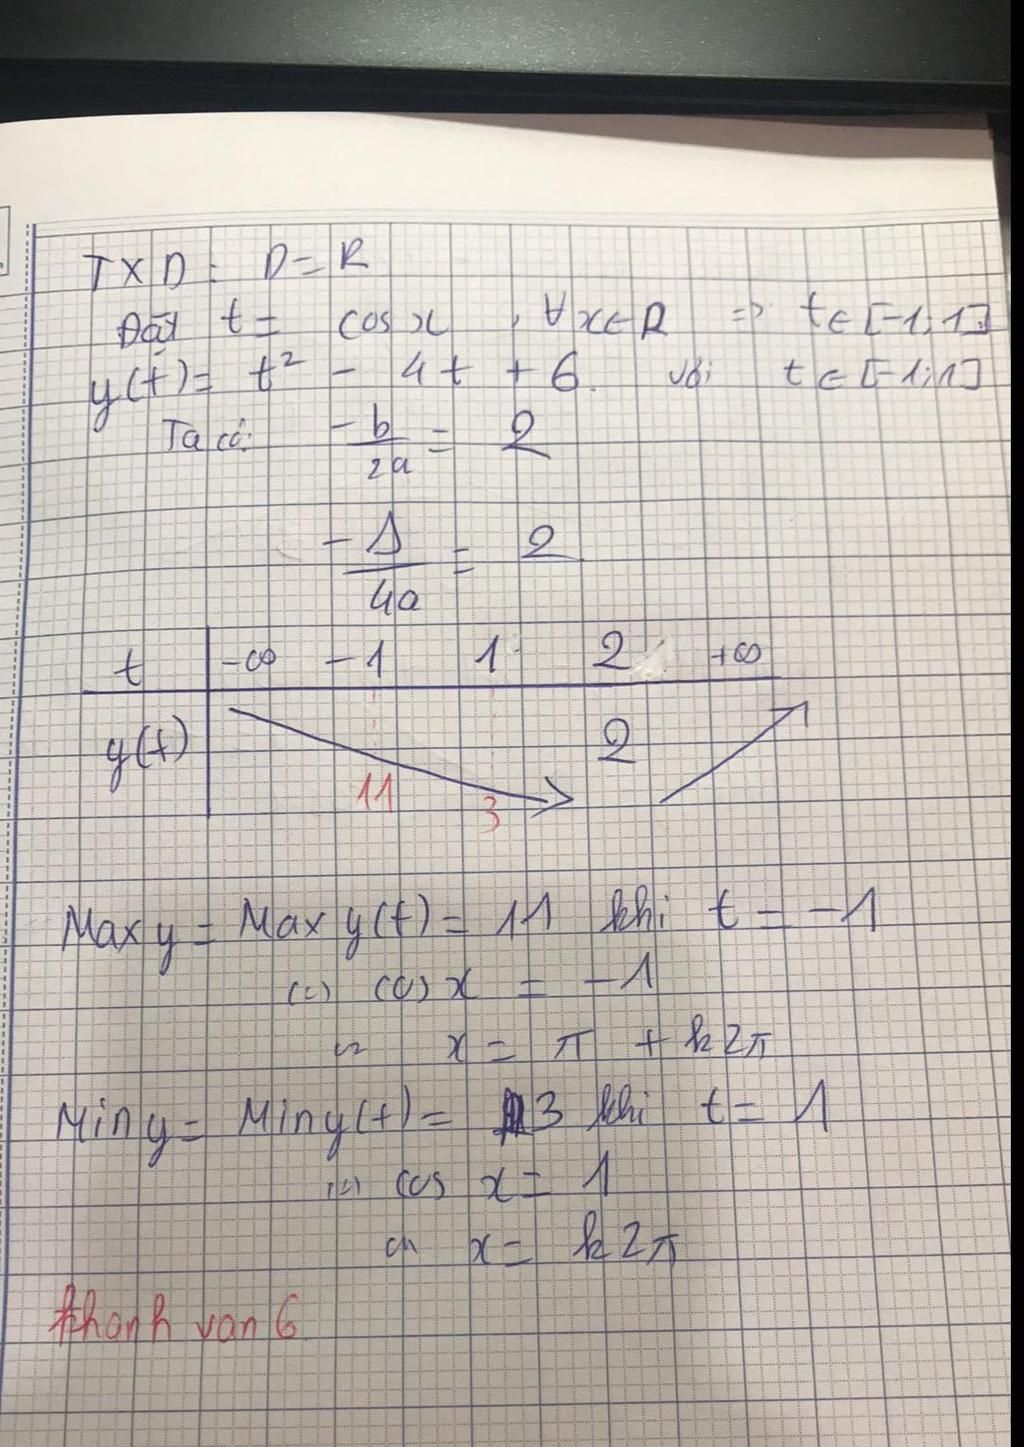 TXD: D=R
Đặt t = cos x, ∀x∈R => t∈[-1;1]
y(t)= t² - 4t + 6. với t∈[-1;1]
Ta có: -b/2a = 2
-Δ/4a = 2
t -∞ -1 1 2 +∞
y(t) 2
11 3
Max y = Max y(t) = 11 khi t = -1
(=) cos x = -1
x = π + k2π
Min y = Min y(t) = 3 khi t = 1
(=) cos x = 1
x = k2π
thanh van 6